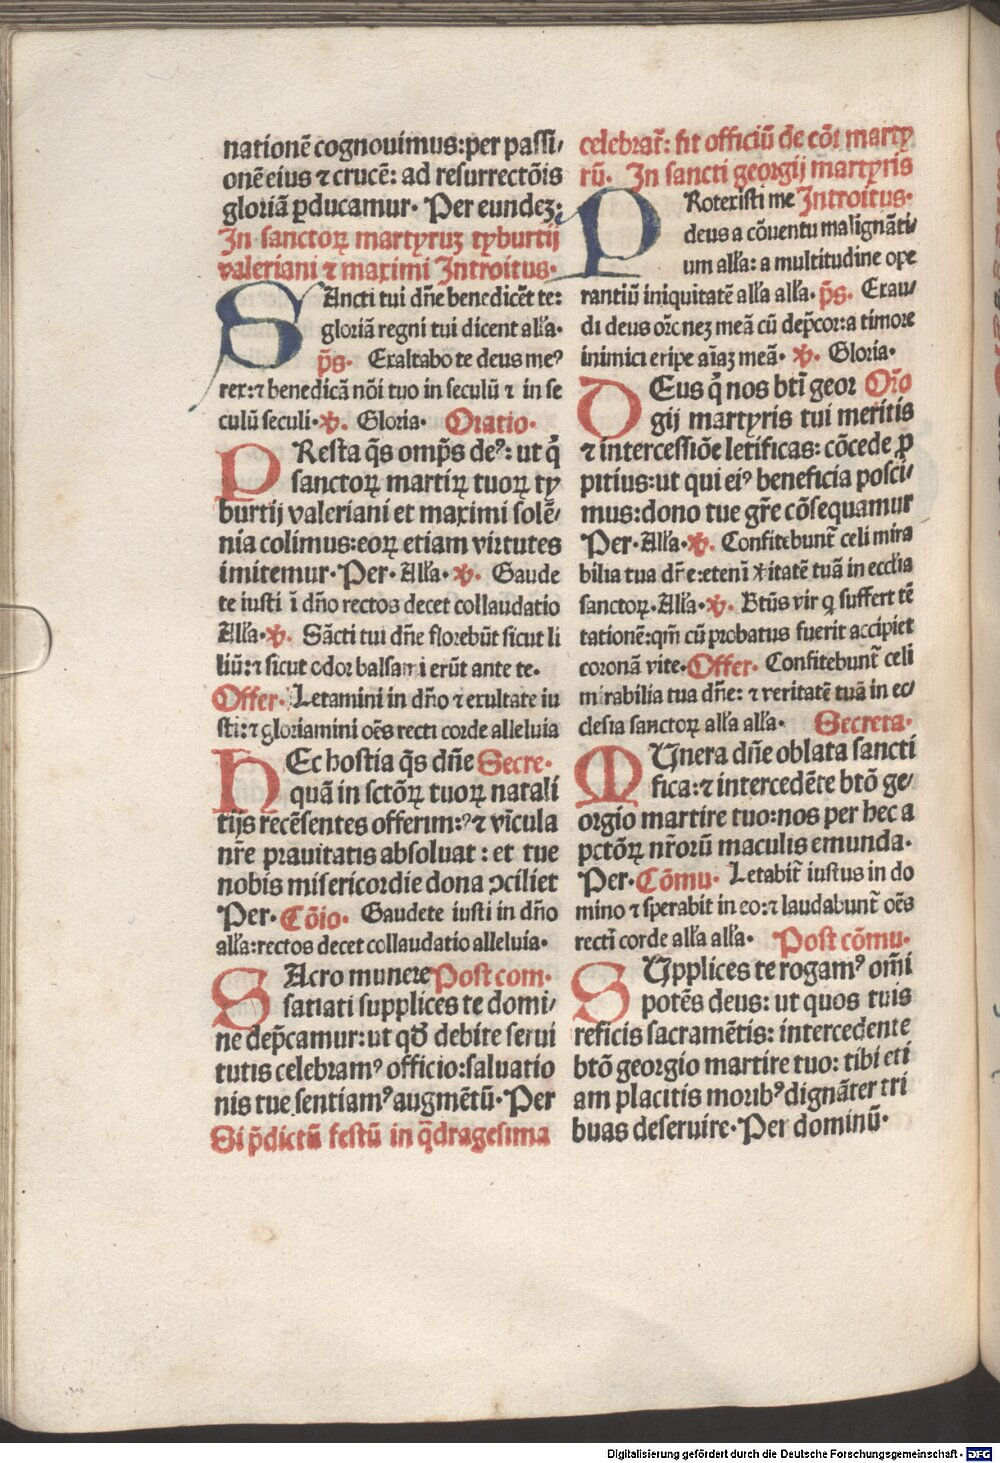 nationē cognouimus: per passi/
onē eius ⁊ crucē: ad resurrectōis
gloriā ꝑducamur. Per eundeꝫ:
In sanctoꝝ martyruꝫ tyburtij
valeriani ⁊ maximi Introitus.
SAncti tui dn̄e benedicēt te:
gloriā regni tui dicent alľa.
p̄s. Exaltabo te deus meꝰ
rex: ⁊ benedicā nōi tuo in seculū ⁊ in se
culū seculi. ℣. Gloria. Oratio.
PResta q̄s omp̄s deꝰ: ut q̇
sanctoꝝ martiꝝ tuoꝝ ty
burtij valeriani et maximi solē/
nia colimus: eoꝝ etiam virtutes
imitemur. Per. Alľa. ℣. Gaude
te iusti ī dn̄o rectos decet collaudatio
Alľa. ℣. Sācti tui dn̄e florebūt sicut li
liū: ⁊ sicut odor balsami erūt ante te.
Offer. Letamini in dn̄o ⁊ exultate iu
sti: ⁊ gloriamini oēs recti corde alleluia
HEc hostia q̄s dn̄e Secre.
quā in sctōꝝ tuoꝝ natali
tijs recēsentes offerimꝰ: ⁊ vīcula
nr̄e prauitatis absoluat: et tue
nobis misericordie dona ↄciliet
Per. Cōio. Gaudete iusti in dn̄o
alľa: rectos decet collaudatio alleluia.
SAcro munere Post com.
satiati supplices te domi/
ne dep̄camur: ut qđ debite serui
tutis celebramꝰ officio: saluatio
nis tue sentiamꝰ augmētū. Per
Si p̄dictū festū in q̄dragesima
celebrat̄: fit officiū de cōi marty
rū. In sancti georgij martyris
PRotexisti me Introitus.
deus a cōuentu malignāti/
um alľa: a multitudine ope
rantiū iniquitatē alľa alľa. p̄s. Exau/
di deus or̄onez meā cū dep̄cor: a timore
inimici eripe aīaꝫ meā. ℣. Gloria.
DEus q̇ nos bt̄i geor Or̄o
gij martyris tui meritis
⁊ intercessiōe letificas: cōcede ꝓ
pitius: ut qui eiꝰ beneficia posci/
mus: dono tue gr̄e cōsequamur
Per. Alľa. ℣. Confitebunt̄ celi mira
bilia tua dn̄e: eteni ꟟itatē tuā in ecclīa
sanctoꝝ. Alľa. ℣. Bt̄us vir q̇ suffert tē
tationē: qm̄ cū probatus fuerit accipiet
coronā vite. Offer. Confitebunt̄ celi
mirabilia tua dn̄e: ⁊ veritatē tuā in ec/
clesia sanctoꝝ alľa alľa. Secreta.
MUnera dn̄e oblata sancti
fica: ⁊ intercedēte btō ge/
orgio martire tuo: nos per hec a
pctōꝝ nr̄orū maculis emunda.
Per. Cōmu. Letabit̄ iustus in do
mino ⁊ sperabit in eo: ⁊ laudabunt̄ oēs
recti corde alľa alľa. Post cōmu.
SUpplices te rogamꝰ om̄i
potēs deus: ut quos tuis
reficis sacramētis: intercedente
btō georgio martire tuo: tibi eti
am placitis moribꝰ dignāter tri
buas deseruire. Per dominū.
Digitalisierung gefördert durch die Deutsche Forschungsgemeinschaft - DFG